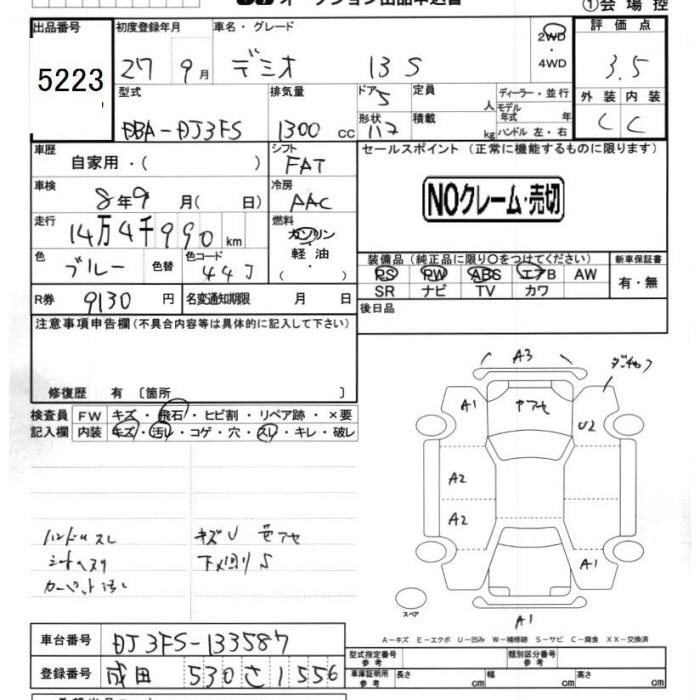 オークション出品申込書
①会場控
出品番号 初度登録年月 車名・グレード 評価点
5223 27 9月 デミオ 13S 2WD ・ 4WD 3.5
型式 排気量 ドア 定員 ディーラー・並行 外装 内装
DBA-DJ3FS 1300cc 5 人 モデル年式 年 C C
形状 積載 kg ハンドル 左・右
車歴 シフト セールスポイント（正常に機能するものに限ります）
自家用・( ) FAT
車検 冷房
8年9月( 日) AAC NOクレーム・売切
走行 燃料
14万4千990km ガソリン・軽油・( )
色 色替 色コード 装備品（純正品に限り○をつけてください） 新車保証書
ブルー 44J PS PW ABS エアB AW 有・無
SR ナビ TV カワ
R券 9130円 名変通知期限 月 日 後日品
注意事項申告欄（不具合内容等は具体的に記入して下さい）
修復歴 有〔箇所 〕
検査員 FW キズ・飛石・ヒビ割・リペア跡・×要
記入欄 内装 キズ・汚レ・コゲ・穴・スレ・キレ・破レ
ハンドルスレ キズU
下メ回りS
A3
A1 U2
A2
A2
A1
スペア A1
A－キズ E－エクボ U－凹み W－補修跡 S－サビ C－腐食 XX－交換済
車台番号 DJ3FS-133587 型式指定番号 参考 類別区分番号 参考
登録番号 成田 530 さ 1556 車庫証明用 参考 長さ cm 幅 cm 高さ cm